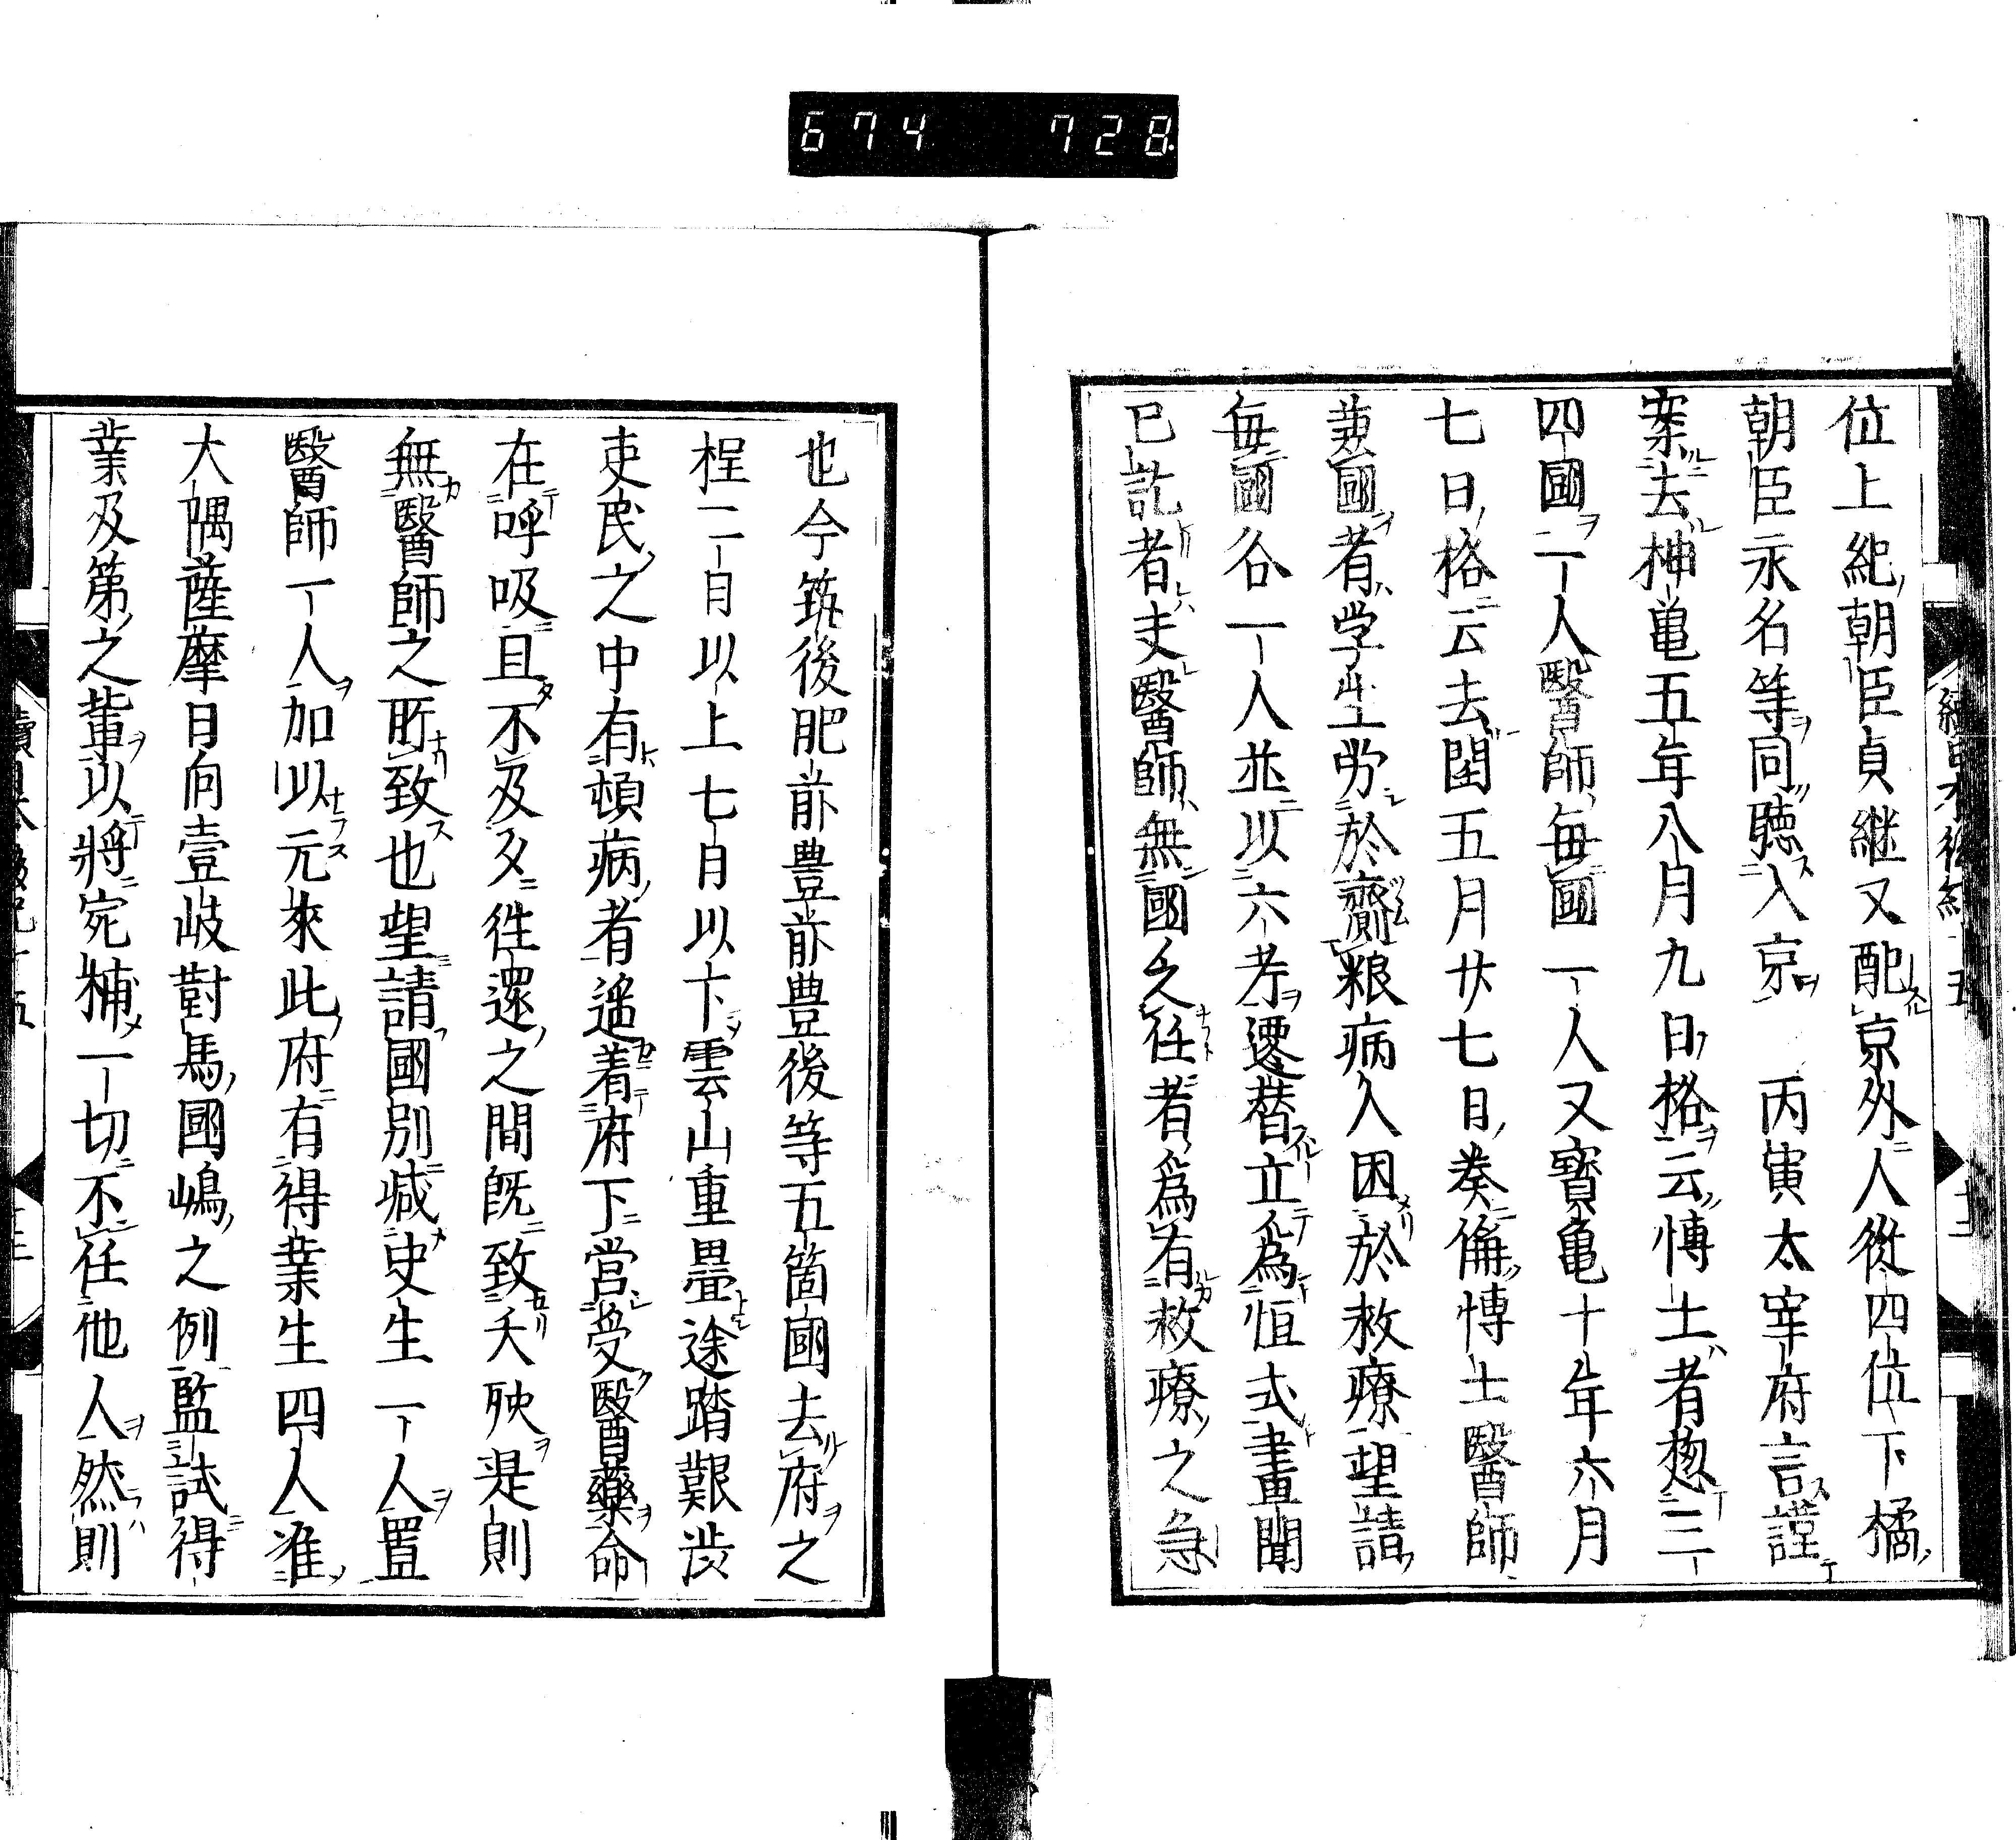 674 728
位上紀朝臣貞継又配京外人從四位下橘
朝臣永名等同聴入京 丙寅太宰府言謹
案去神亀五年八月九日格云博士者惣三
四國一人醫師毎國一人又寳亀十年六月
七日格云去閏五月廿七日奏偁博士醫師
兼國者学生労於齎粮病人困於救療望請
毎國各一人並以六考遷替立為恒式畫聞
已訖者夫醫師無國乏任者為有救療之急
也今筑後肥前豊前豊後等五箇國去府之
程二日以上七日以下雲山重疊途踏艱渋
吏民之中有頓病者遥着府下営受醫藥命
在呼吸且不及夕徃還之間既致夭殃是則
無醫師之所致也望請國別减史生一人置
醫師一人加以元來此府有得業生四人准
大隅薩摩日向壹岐對馬國嶋之例監試得
業及第之輩以將宛補一切不任他人然則